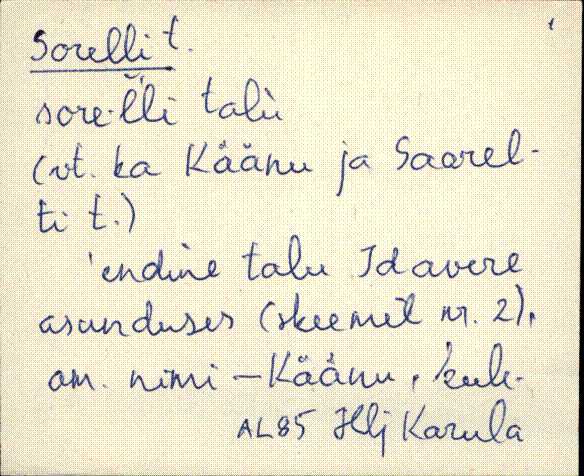 Sorelli t.
sore·l̆l̆i talù
(vt. ka Käänu ja Saarel-
ti t.)
'endine talu Idavere
asunduses (skeemil nr. 2),
am. nimi – Käänu,
AL85 Hlj Karula